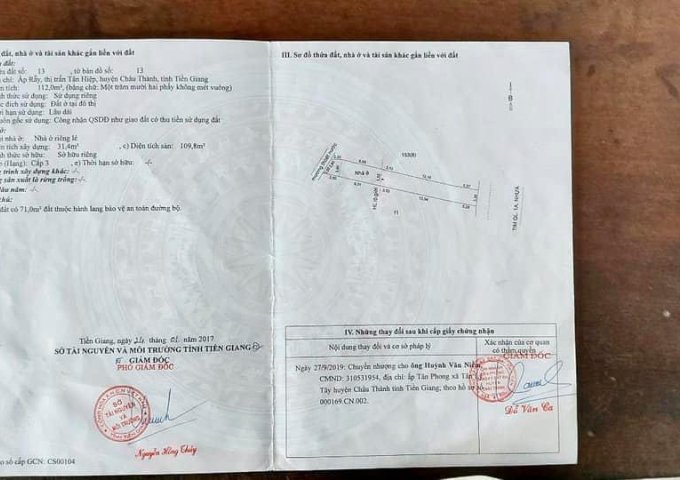 đất, nhà ở và tài sản khác gắn liền với đất
đất:
ửa đất số: 13 , tờ bản đồ số: 13
chỉ: Ấp Rẫy, thị trấn Tân Hiệp, huyện Châu Thành, tỉnh Tiền Giang
n tích: 112,0m², (bằng chữ: Một trăm mười hai phẩy không mét vuông)
nh thức sử dụng: Sử dụng riêng
c đích sử dụng: Đất ở tại đô thị
i hạn sử dụng: Lâu dài
uồn gốc sử dụng: Công nhận QSDĐ như giao đất có thu tiền sử dụng đất
ở:
i nhà ở: Nhà ở riêng lẻ
n tích xây dựng: 31,4m² , c) Diện tích sàn: 109,8m²
nh thức sở hữu: Sở hữu riêng
(Hạng): Cấp 3 , e) Thời hạn sở hữu: -/-
trình xây dựng khác: -/-
g sản xuất là rừng trồng: -/-
lâu năm: -/-
hú:
đất có 71,0m² đất thuộc hành lang bảo vệ an toàn đường bộ.
Tiền Giang, ngày 01 năm 2017
SỞ TÀI NGUYÊN VÀ MÔI TRƯỜNG TỈNH TIỀN GIANG
GIÁM ĐỐC
PHÓ GIÁM ĐỐC
SỞ
TÀI NGUYÊN
VÀ
MÔI TRƯỜNG
Nguyễn Hồng Thủy
o số cấp GCN: CS00104
III. Sơ đồ thửa đất, nhà ở và tài sản khác gắn liền với đất
B
153(8)
Nhà ở
HLLG giới
13
TIM QL 1A, NHỰA
IV. Những thay đổi sau khi cấp giấy chứng nhận
Nội dung thay đổi và cơ sở pháp lý
Xác nhận của cơ quan
có thẩm quyền
GIÁM ĐỐC
Ngày 27/9/2019: Chuyển nhượng cho ông Huỳnh Văn Niềm,
CMND: 310531954, địa chỉ: ấp Tân Phong xã Tân
Tây huyện Châu Thành tỉnh Tiền Giang; theo hồ sơ
000169.CN.002.
Đỗ Văn Ca